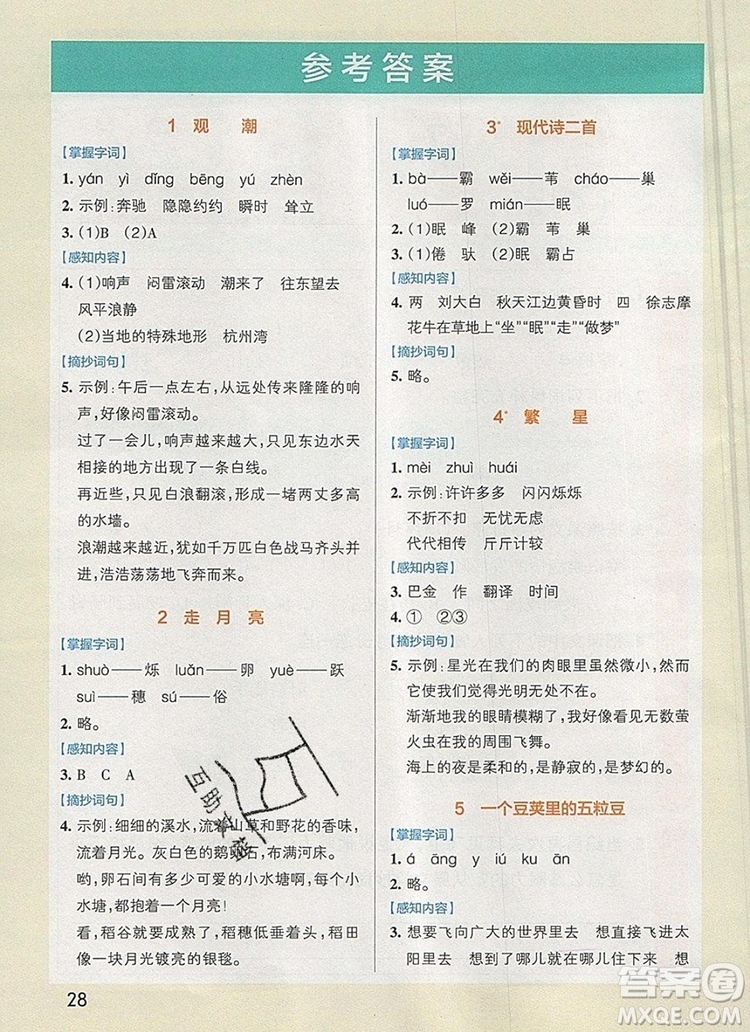 参考答案
1 观 潮
【掌握字词】
1. yán yì dǐng bēng yú zhèn
2. 示例:奔驰 隐隐约约 瞬时 耸立
3. (1)B (2)A
【感知内容】
4. (1)响声 闷雷滚动 潮来了 往东望去
风平浪静
(2)当地的特殊地形 杭州湾
【摘抄词句】
5. 示例:午后一点左右,从远处传来隆隆的响
声,好像闷雷滚动。
过了一会儿,响声越来越大,只见东边水天
相接的地方出现了一条白线。
再近些,只见白浪翻滚,形成一堵两丈多高
的水墙。
浪潮越来越近,犹如千万匹白色战马齐头并
进,浩浩荡荡地飞奔而来。
2 走 月 亮
【掌握字词】
1. shuò——烁 luǎn——卵 yuè——跃
suì——穗 sú——俗
2. 略。
【感知内容】
3. B C A
【摘抄词句】
4. 示例:细细的溪水,流着山草和野花的香味,
流着月光。灰白色的鹅卵石,布满河床。
哟,卵石间有多少可爱的小水塘啊,每个小
水塘,都抱着一个月亮!
看,稻谷就要成熟了,稻穗低垂着头,稻田
像一块月光镀亮的银毯。
3* 现代诗二首
【掌握字词】
1. bà——霸 wěi——苇 cháo——巢
luó——罗 mián——眠
2. (1)眠 峰 (2)霸 苇 巢
3. (1)倦 驮 (2)安眠 霸占
【感知内容】
4. 两 刘大白 秋天江边黄昏时 四 徐志摩
花牛在草地上“坐”“眠”“走”“做梦”
【摘抄词句】
5. 略。
4* 繁 星
【掌握字词】
1. mèi zhuì huái
2. 示例:许许多多 闪闪烁烁
不折不扣 无忧无虑
代代相传 斤斤计较
【感知内容】
3. 巴金 作 翻译 时间
4. ① ②③
【摘抄词句】
5. 示例:星光在我们的肉眼里虽然微小,然
而它使我们觉得光明无处不在。
渐渐地我的眼睛模糊了,我好像看见无数萤
火虫在我的周围飞舞。
海上的夜是柔和的,是静寂的,是梦幻的。
5 一个豆荚里的五粒豆
【掌握字词】
1. á āng y iú ku ān
2. 略。
【感知内容】
3. 想要飞向广大的世界里去 想直接飞进太
阳里去 想到了哪儿就在哪儿住下来 想
28
互助文检
答案圈
MXQE.COM